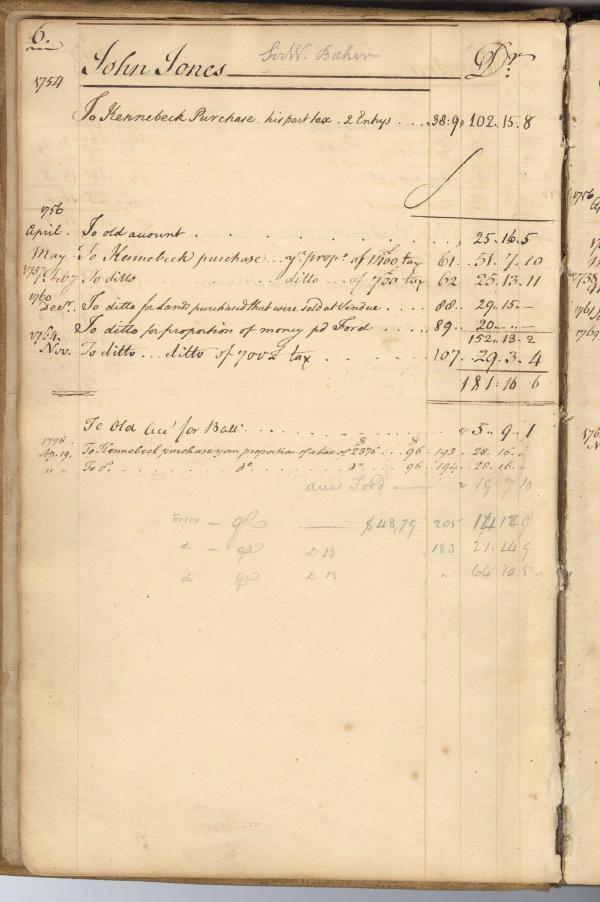 6.
John Jones Sir W. Baker Dr
1754
To Kennebeck Purchase his part tax . 2 Entrys .... 38:9 102.15.8
1756
April. To old acount 25.16.5
May To Kennebeck purchase .. ye propn of 1400 tax 61 .. 51. 7.10
1757 Feby To ditto ... ditto .. of 750 tax 62 25.13.11
1760
Decr. To ditto for Lands purchased that were sold at Vendue .... 88.. 29..15..—
To ditto for proportion of money pd Ford . . . . 89.. 20..—..—
152..13..2
1764.
Nov. To ditto ... ditto of 700£ tax 107 .. 29..3..4
181:16 6
To Old Acct for Balle 5..9..1
1798.
Ap. 19. To Kennebeck purchase your proportion of a tax of $2376 ... $96 .. 193 .. 28..16..
" " To do. do do 96 .. 194 .. 28..16..
due Ford — 19 7 10
Error — — $48,79 205 14 12 9
do — DB 183 21..14 9
do DB " 66 10 5
1756
1758
1761
1764